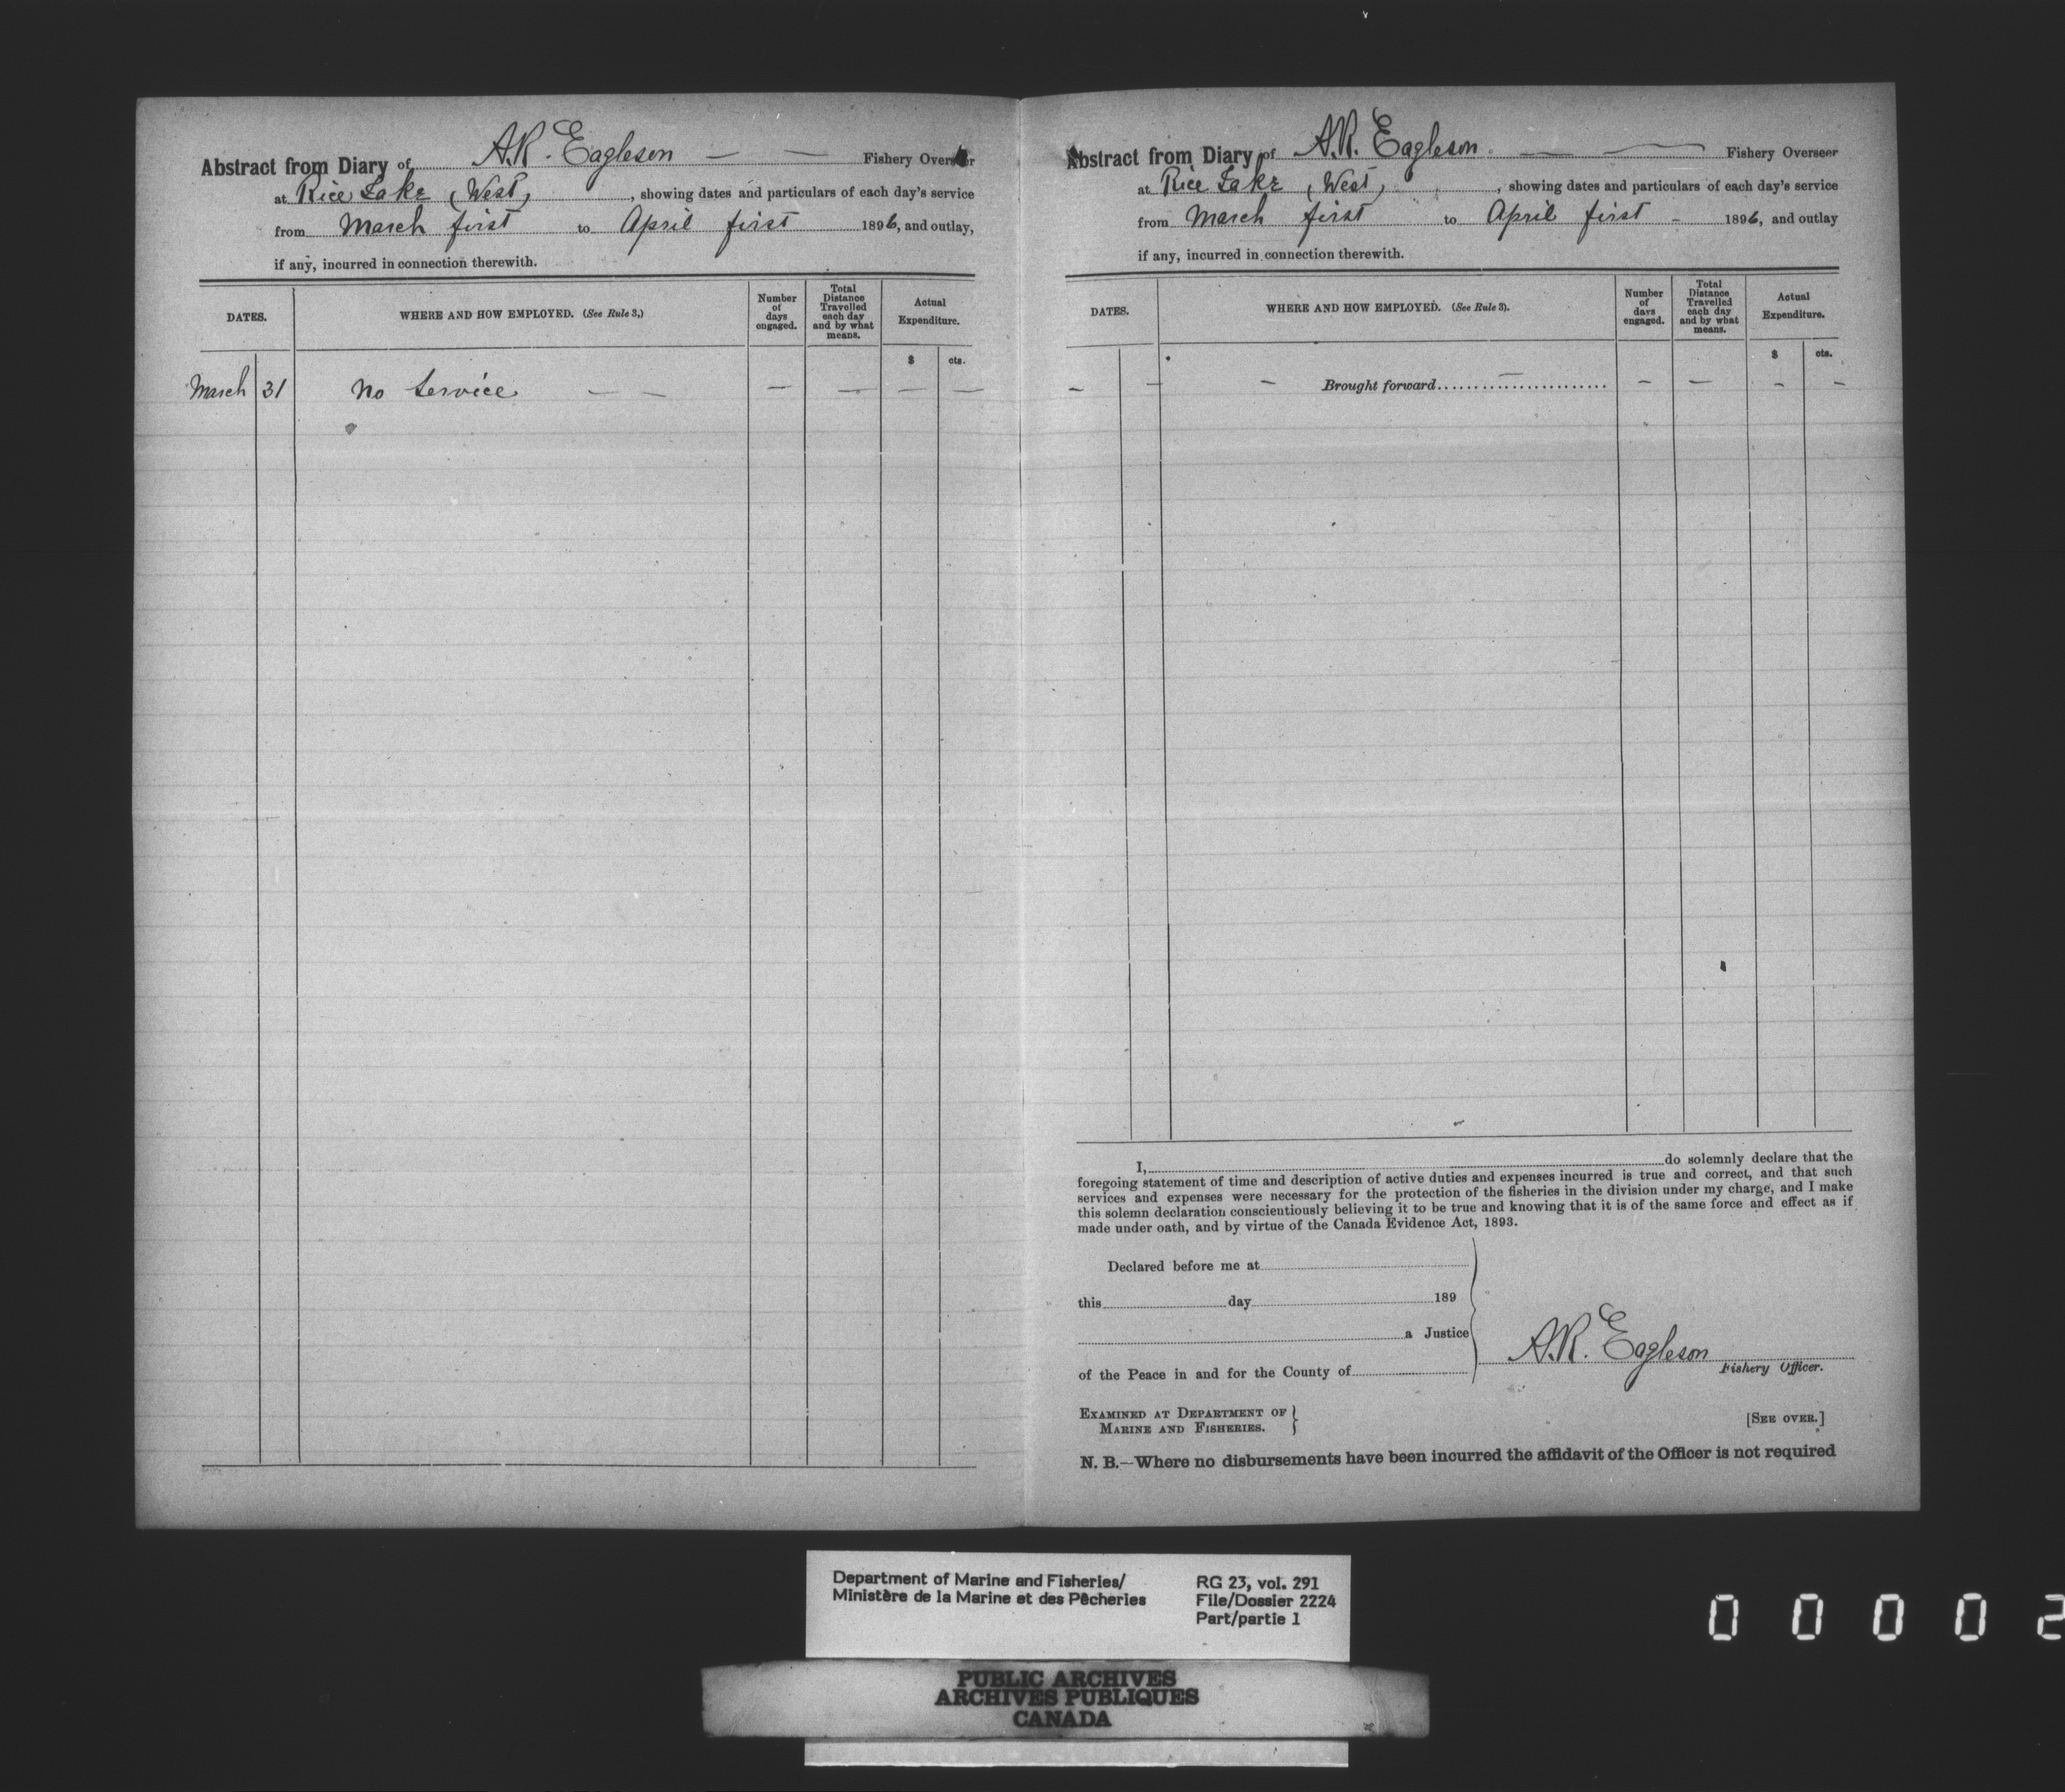 Abstract from Diary of A.R. Eagleson — — Fishery Overseer
at Rice Lake (West) , showing dates and particulars of each day's service
from March first to April first 1896, and outlay,
if any, incurred in connection therewith.
DATES.
WHERE AND HOW EMPLOYED. (See Rule 3,)
Number
of
days
engaged.
Total
Distance
Travelled
each day
and by what
means.
Actual
Expenditure.
$ cts.
March 31 No Service — — — — — —
Abstract from Diary of A.R. Eagleson. — — Fishery Overseer
at Rice Lake (West) , showing dates and particulars of each day's service
from March first to April first - 1896, and outlay
if any, incurred in connection therewith.
DATES.
WHERE AND HOW EMPLOYED. (See Rule 3).
Number
of
days
engaged.
Total
Distance
Travelled
each day
and by what
means.
Actual
Expenditure.
$ cts.
— — — Brought forward — — — — —
I, do solemnly declare that the
foregoing statement of time and description of active duties and expenses incurred is true and correct, and that such
services and expenses were necessary for the protection of the fisheries in the division under my charge, and I make
this solemn declaration conscientiously believing it to be true and knowing that it is of the same force and effect as if
made under oath, and by virtue of the Canada Evidence Act, 1893.
Declared before me at
this day 189
a Justice
of the Peace in and for the County of
A.R. Eagleson
Fishery Officer.
EXAMINED AT DEPARTMENT OF
MARINE AND FISHERIES.
[SEE OVER.]
N. B.—Where no disbursements have been incurred the affidavit of the Officer is not required
Department of Marine and Fisheries/
Ministère de la Marine et des Pêcheries
RG 23, vol. 291
File/Dossier 2224
Part/partie 1
PUBLIC ARCHIVES
ARCHIVES PUBLIQUES
CANADA
0 0 0 0 2